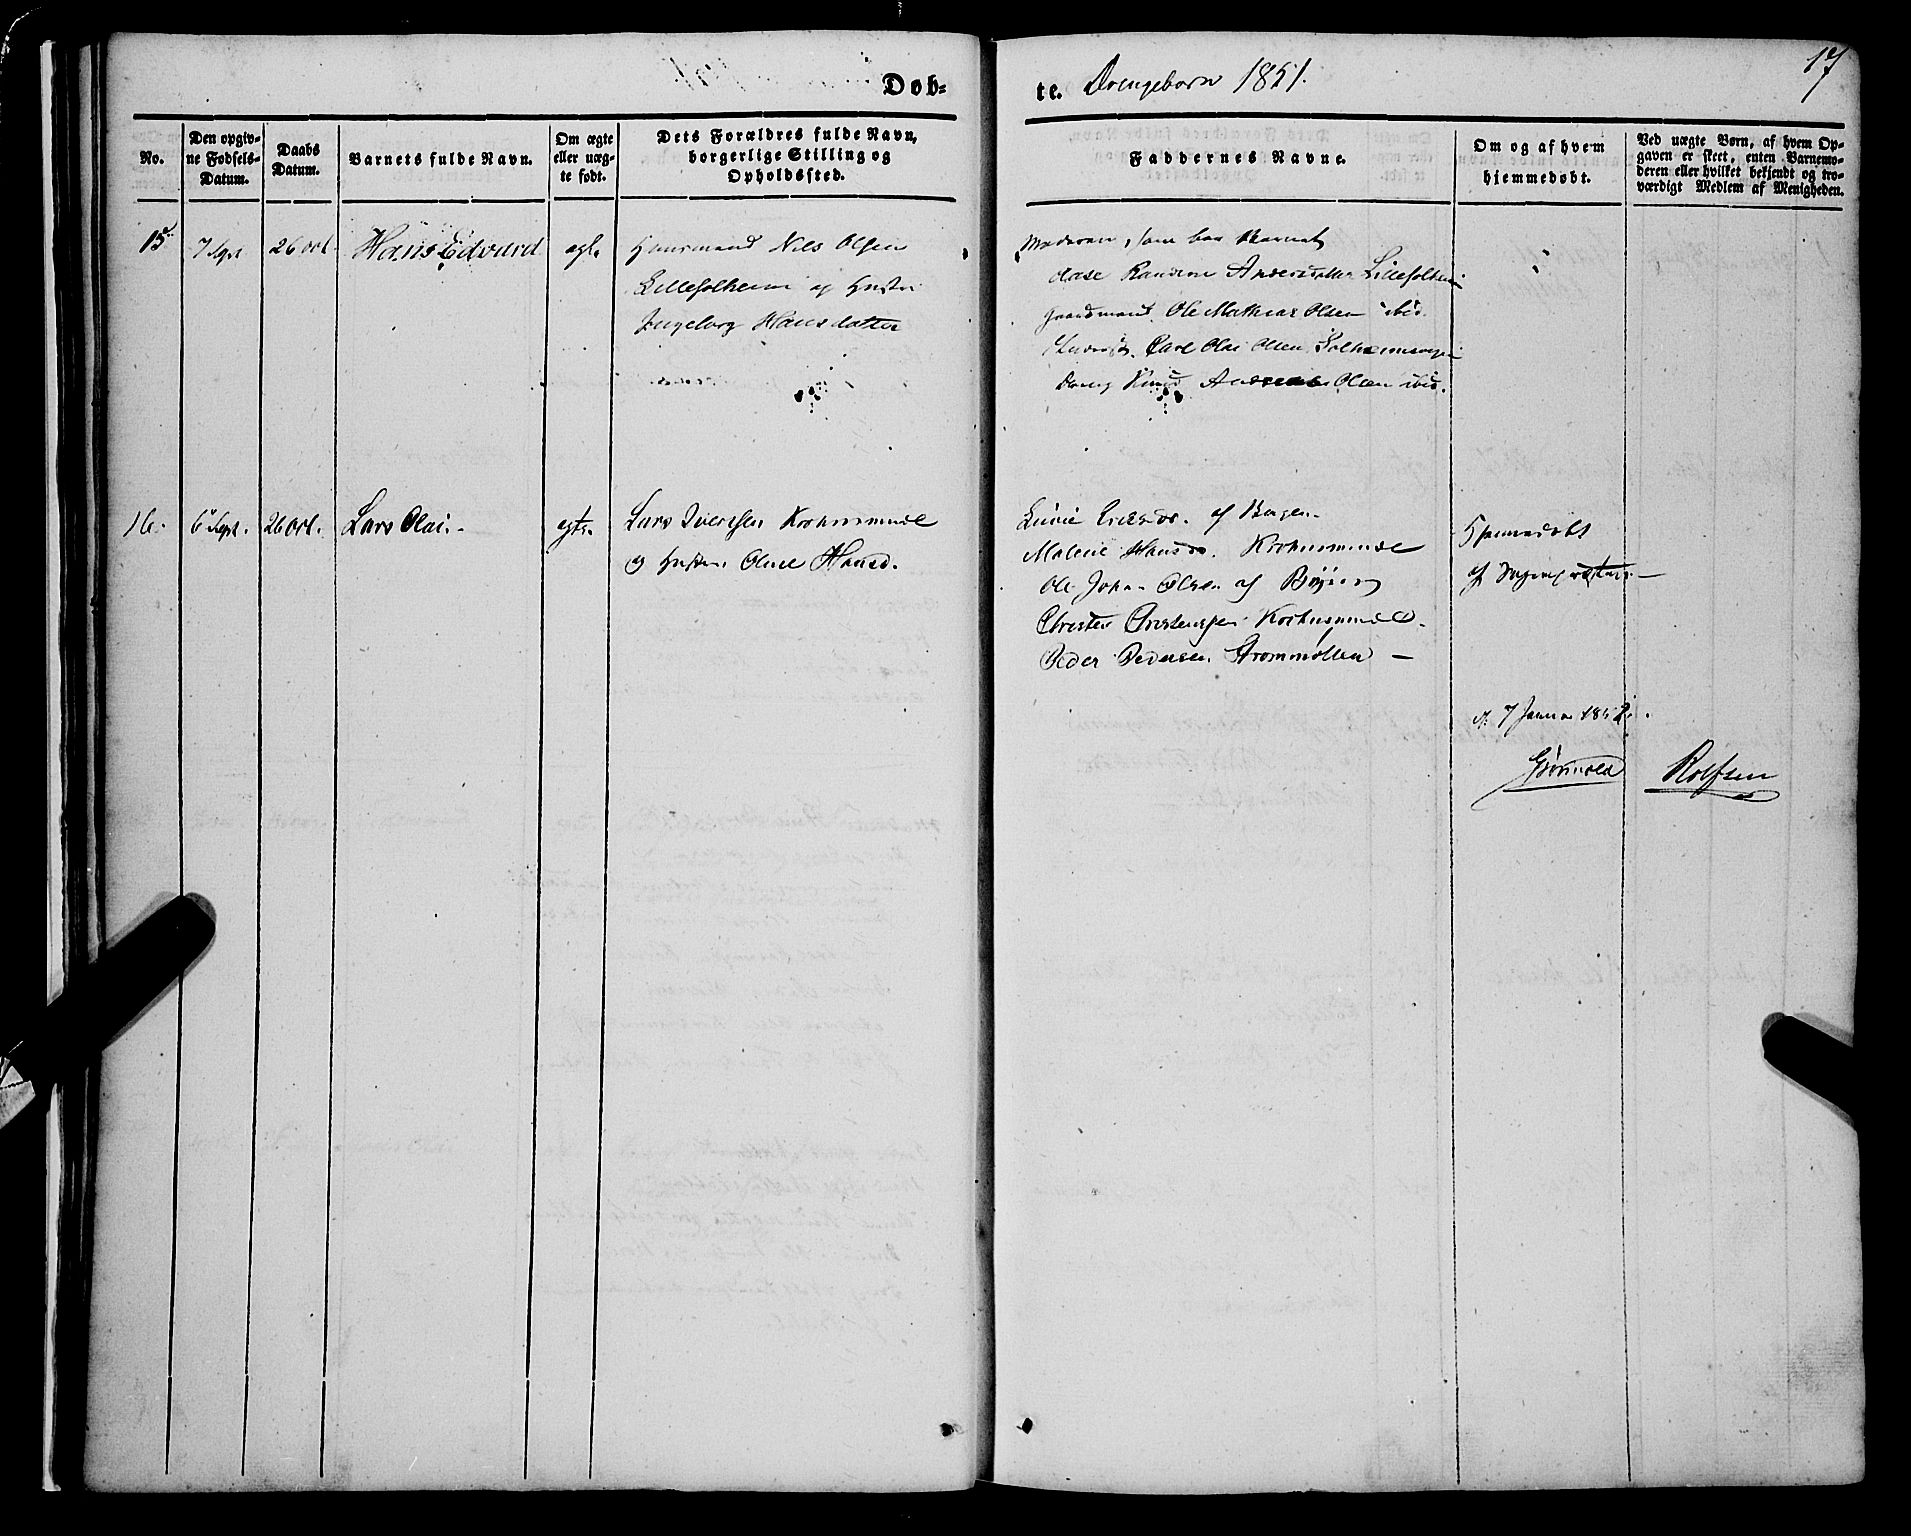 Døb-
te. Drengebørn 1851.
17
No.
Den opgiv-
ne Fødsels-
Datum.
Daabs
Datum.
Barnets fulde Navn.
Om ægte
eller uæg-
te født.
Dets Forældres fulde Navn,
borgerlige Stilling og
Opholdssted.
Faddernes Navne.
Om og af hvem
hjemmedøbt.
Ved uægte Børn, af hvem Op-
gaven er skeet, enten Barnemo-
deren eller hvilket bekjendt og tro-
værdigt Medlem af Menigheden.
15
7 Sept
26 Oct
Hans Edvard
ægte
Huusmand Nils Olsen
og Hustru
Ingeborg Hansdatter
Moderen, som bar Barnet
Andersdatter
Gaardmand Ole Mathias Olsen ibid.
Carl Olai Olsen
Dreng Knud Andreas Olsen ibid.
16.
6 Sept.
26 Oct.
Lars Olai.
ægte.
Lars Iversen
og Hustru Oline Hansd.
af Bergen
Malene Hansd.
Ole Johan Olsen af
Christen Christensen
Peder Pedersen Strømmøllen —
Hjemmedøbt
af
d. 7 Januar 1852.
Grønvold
Rolfsen